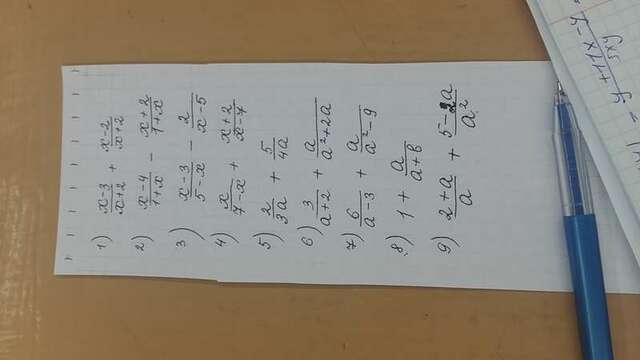 1) \frac{x-3}{x+2} + \frac{x-2}{x+2}
2) \frac{x-4}{1+x} - \frac{x+2}{1+x}
3) \frac{x-3}{5-x} - \frac{2}{x-5}
4) \frac{x}{7-x} + \frac{x+2}{x-7}
5) \frac{2}{3a} + \frac{5}{4a}
6) \frac{3}{a+2} + \frac{a}{a^2+2a}
7) \frac{6}{a-3} + \frac{a}{a^2-9}
8) 1 + \frac{a}{a+b}
9) \frac{2+a}{a} + \frac{5-2a}{a^2}